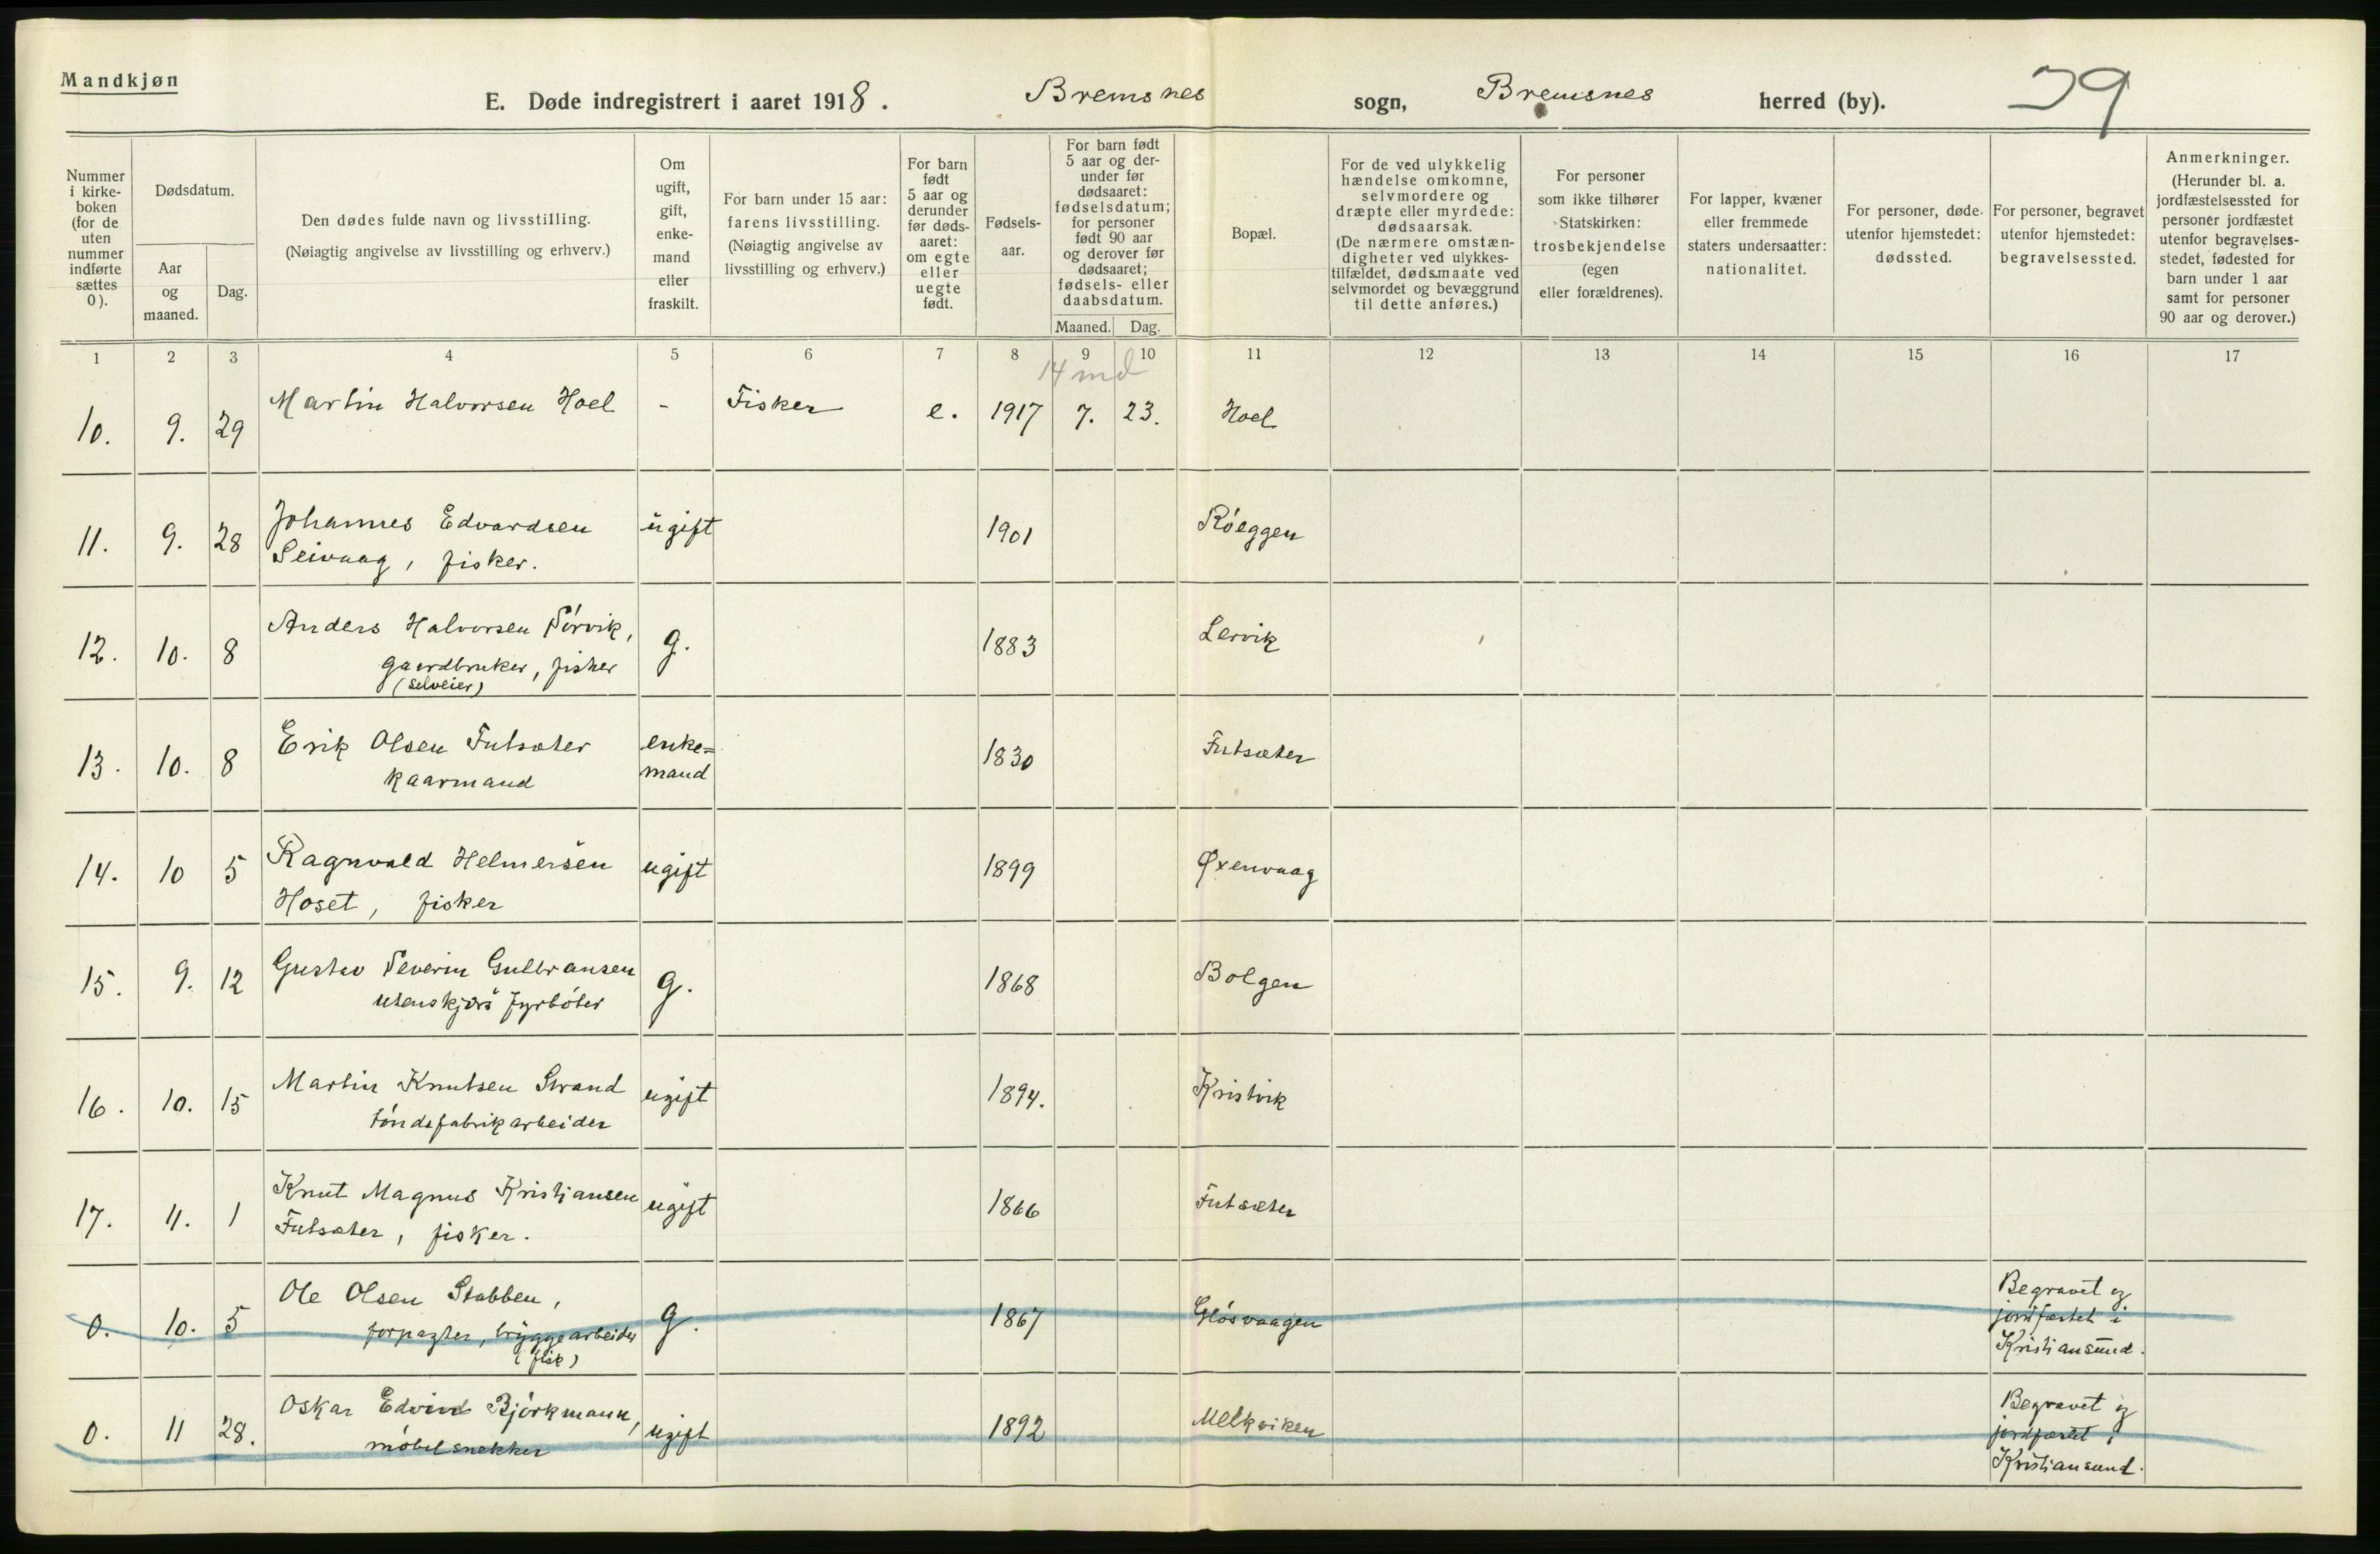 Mandkjøn
E. Døde indregistrert i aaret 1918. Bremsnes sogn, Bremsnes herred (by). 39
Nummer i kirke- boken (for de uten nummer indførte sættes 0).
Dødsdatum.
Aar og maaned.
Dag.
Den dødes fulde navn og livsstilling.
(Nøiagtig angivelse av livsstilling og erhverv.)
Om ugift, gift, enke- mand eller fraskilt.
For barn under 15 aar: farens livsstilling. (Nøiagtig angivelse av livsstilling og erhverv.)
For barn født 5 aar og derunder før døds- aaret: om egte eller uegte født.
Fødsels- aar.
For barn født 5 aar og der- under før dødsaaret: fødselsdatum; for personer født 90 aar og derover før dødsaaret; fødsels- eller daabsdatum.
Maaned. Dag.
Bopæl.
For de ved ulykkelig hændelse omkomne, selvmordere og dræpte eller myrdede: dødsaarsak. (De nærmere omstæn- digheter ved ulykkes- tilfældet, dødsmaate ved selvmordet og bevæggrund til dette anføres.)
For personer som ikke tilhører Statskirken: trosbekjendelse (egen eller forældrenes).
For lapper, kvæner eller fremmede staters undersaatter: nationalitet.
For personer, døde utenfor hjemstedet: dødssted.
For personer, begravet utenfor hjemstedet: begravelsessted.
Anmerkninger. (Herunder bl. a. jordfæstelsessted for personer jordfæstet utenfor begravelses- stedet, fødested for barn under 1 aar samt for personer 90 aar og derover.)
1 2 3 4 5 6 7 8 9 10 11 12 13 14 15 16 17
14 md
10. 9. 29 Martin Halvorsen Hoel - Fisker e. 1917 7. 23. Hoel
11. 9. 28 Johannes Edvardsen ugift 1901 Røeggen
Seivaag, fisker.
12. 10. 8 Anders Halvorsen Sørvik, g. 1883 Lervik
gaardbruker, fisker
(selveier)
13. 10. 8 Erik Olsen Futsæter enke= 1830 Futsæter
kaarmand mand
14. 10 5 Ragnvald Helmersen ugift 1899 Øxenvaag
Hoset, fisker
15. 9. 12 Gustav Severin Gulbransen g. 1868 Bolgen
utenskjærs fyrbøter
16. 10. 15 Martin Knutsen Strand ugift 1894. Kristvik
tøndefabrikarbeider
17. 11. 1 Knut Magnus Kristiansen ugift 1866 Futsæter
Futsæter, fisker.
0. 10. 5 Ole Olsen Stabben, g. 1867 Gløsvaagen Begravet og
forpagter, bryggearbeider jordfæstet i
(fisk) Kristiansund.
0. 11 28. Oskar Edvind Bjørkmann, ugift 1892 Melkviken Begravet og
møbelsnekker jordfæstet i
Kristiansund.